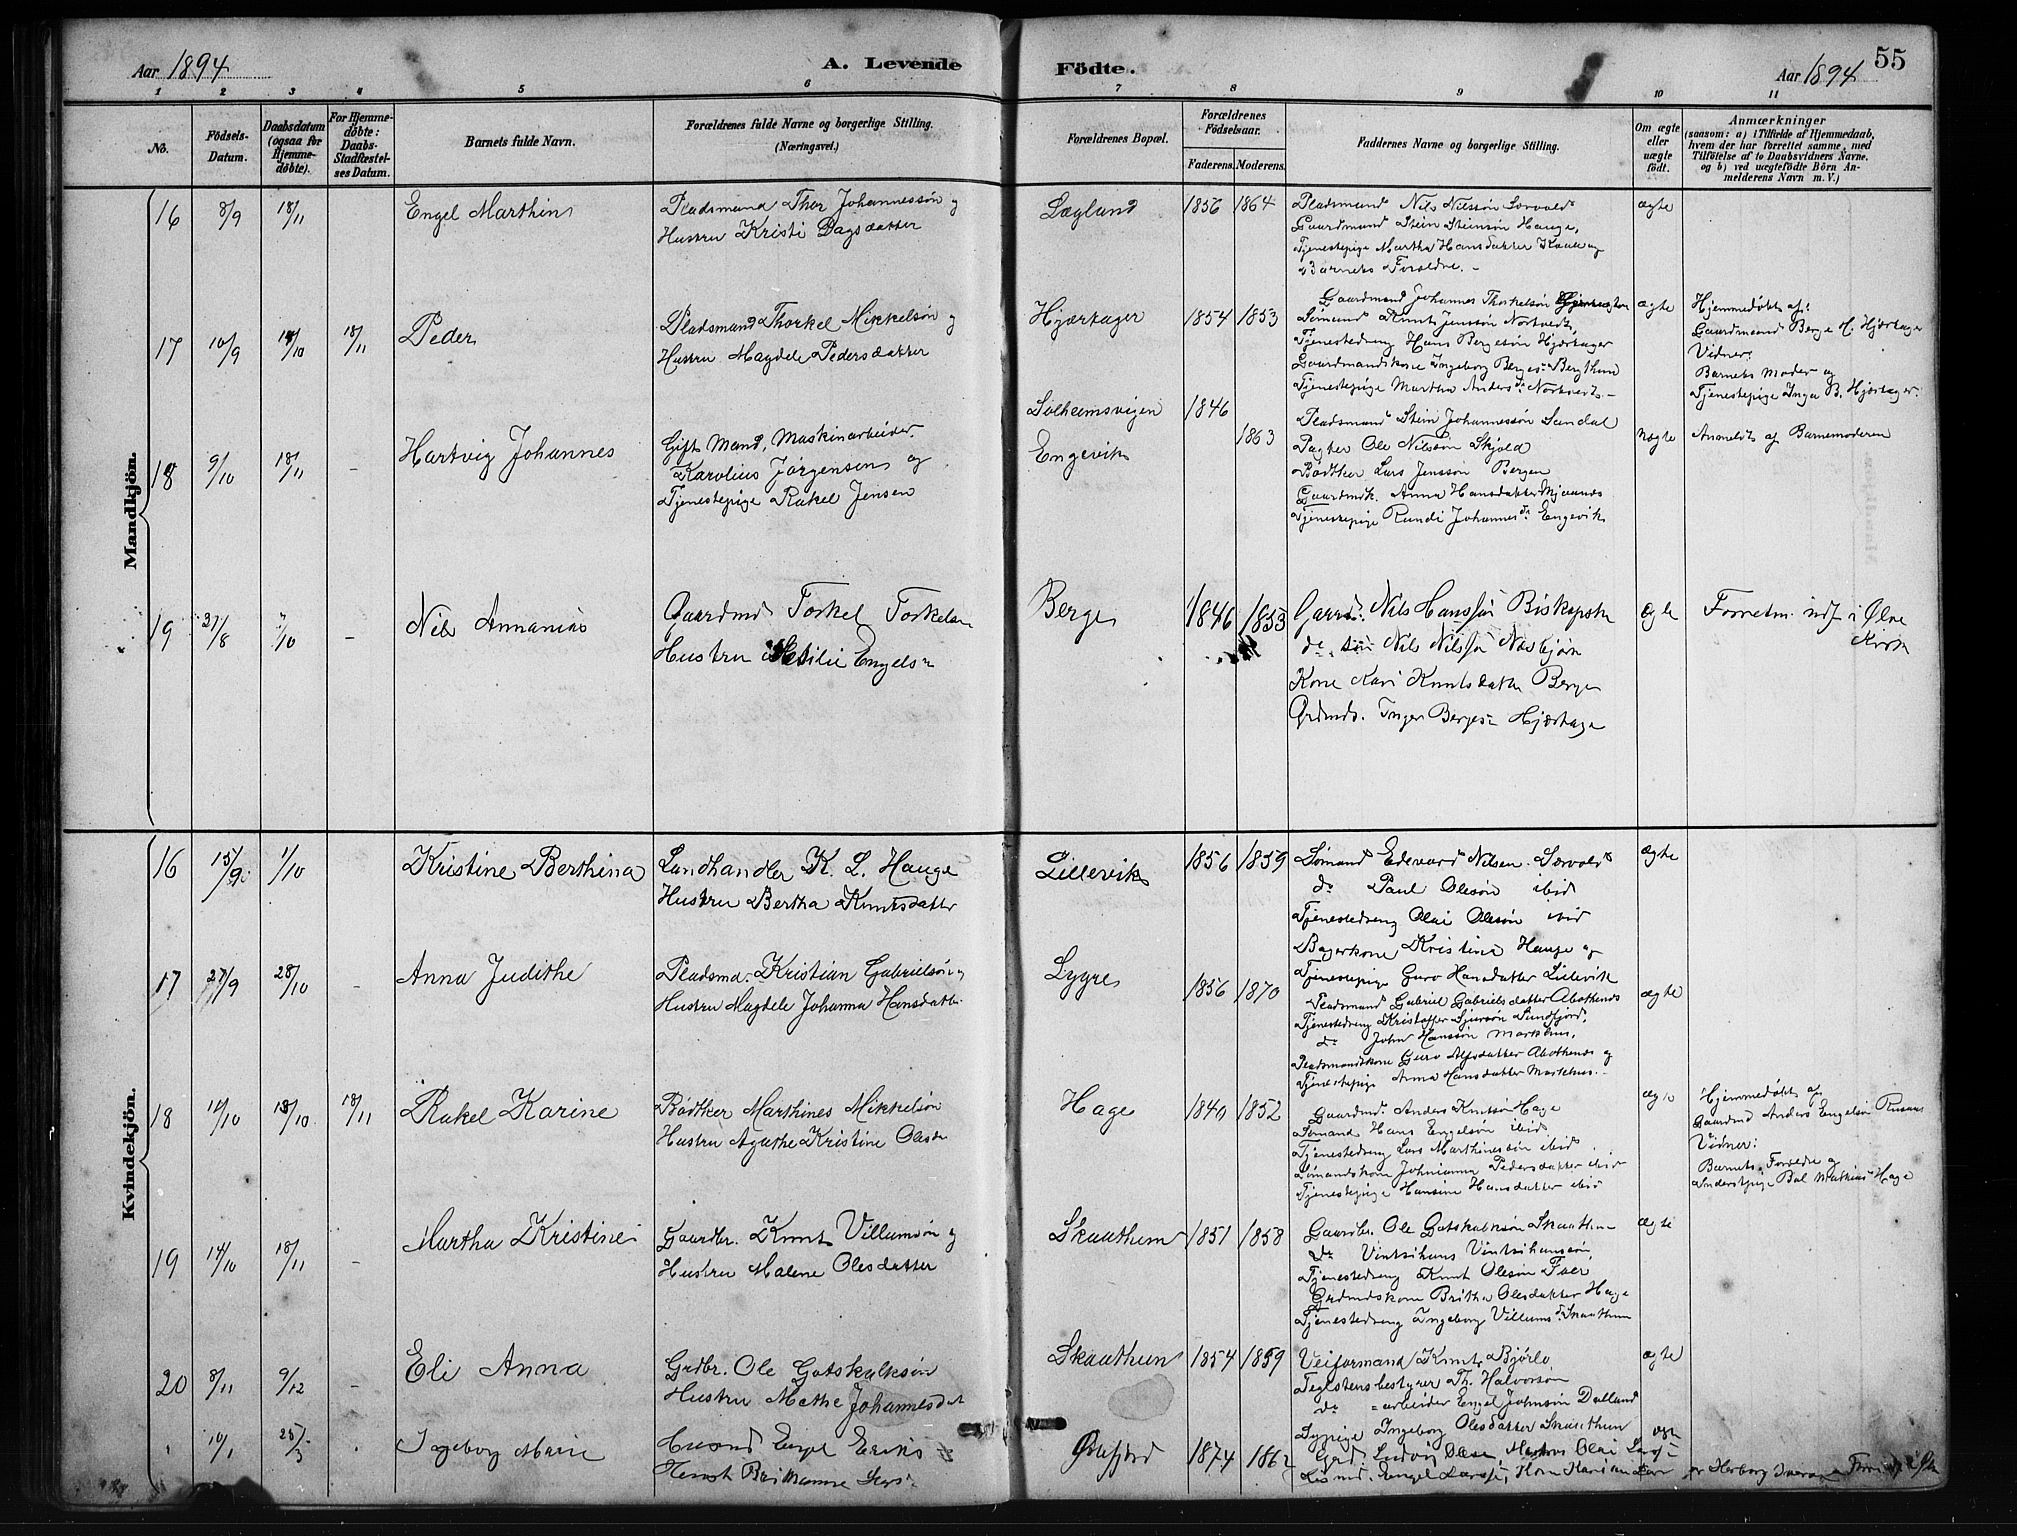 Aar 1894
A. Levende
Födte.
Aar 1894
55
1 2 3 4 5 6 7 8 9 10 11
No.
Födsels-
Datum.
Daabsdatum
(ogsaa for
Hjemme-
döbte).
For Hjemme-
döbte:
Daabs-
Stadfæstel-
ses Datum.
Barnets fulde Navn.
Forældrenes fulde Navne og borgerlige Stilling.
(Næringsvei.)
Forældrenes Bopæl.
Forældrenes
Födselsaar.
Faderens.
Moderens.
Faddernes Navne og borgerlige Stilling.
Om ægte
eller
uægte
födt.
Anmærkninger
(saasom: a) i Tilfælde af Hjemmedaab,
hvem der har forrettet samme, med
Tilföielse af to Daabsvidners Navne.
og b) ved uægtefödte Börn An-
melderens Navn m. V.)
Mandkjön.
16 8/9 18/11
Engel Marthin
Pladsmand Thor Johannessön og
Hustru Kristi Dagsdatter
Lægland
1856 1864
Pladsmand Nils Nilssön Særvold
Gaardmand Stein Steinsön Hauge,
Tjenestepige Martha Hansdatter
Barnets Forældre. -
ægte
17 10/9 14/10 18/11
Peder
Pladsmand Thorkel Mikkelsön og
Hustru Magdele Pedersdatter
Hjærtager
1854 1853
Gaardmand Johannes Thorkelsön
Sömand Knut Jenssön Nortvedt,
Tjenestedreng Hans Bergesön Hjærtager
Gaardmandskone Ingeborg Berges- Bergthun
Tjenestepige Martha Anders dr Nortvedt. -
ægte
Hjemmedöbt af:
Gaardmand Berge H. Hjærtager
Vidner:
Barnets Moder og
Tjenestepige Inga B. Hjærtager.
18 9/10 18/11 -
Hartvig Johannes
Gift Mand, Maskinarbeider
Karolius Jörgensen og
Tjenestepige Rakel Jensen
Solheimsvigen
Engevik
1846
1863
Pladsmand Stein Johannessön Sandal
Pagter Ole Nilssön Skjold
Bödtker Lars Jenssön Bergen
Gaardmk. Anna Hansdatter
Tjenestepige Rundi Johannes dr Engevik
uægte
Anmeldt af Barnemoderen
19 31/8 7/10 -
Nils Annanias
Gaardmd Torkel Torkelsen
Hustru Engels
Berge
1846 1853
Gaard. Nils Hanssön Biskopst
do Nils Nilssön Næsbjörn
Kone Kari Knutsdatter Berge
Grdmds. Inger Berges Hjærtage
ægte
Forretn. indf i Ølve
Kirk
Kvindekjön.
16 15/9 1/10
Kristine Berthina
Landhandler K. L. Hauge
Hustru Bertha Knutsdatter
Lillevik
1856 1859
Sömand Edevard Nilsen Særvold
do Paul Olesön ibid
Tjenestedreng Olai Olesön ibid
Bagerkone Kristine Hauge og
Tjenestepige Guro Hansdatter Lillevik
ægte
17 27/9 28/10 -
Anna Judithe
Pladsmd. Kristian Gabrielsön og
Hustru Magdele Johanna Hansdatter
Lygre
1856 1870
Pladsmand Gabriel Gabrielsdatter Abothenes
Tjenestedreng Kristoffer Sjursön Sundfjord,
do John Hanssön Markhus,
Pladsmandskone Guro Alfsdatter Abothenes og
Tjenestepige Anna Hansdatter Markhus. -
ægte
18 14/10 18/10 18/11
Rakel Karine
Bödtker Marthines Mikkelsön
Hustru Agathe Kristine Olesdr
Hage
1840 1852
Gaardmd. Anders Knutsön Hage
Sömand Hans Engelsön ibid
Tjenestedreng Lars Marthinessön ibid
Sömandskone Johnianna Pedersdatter ibid
Tjenestepige Hansine Hansdatter ibid
ægte
Hjemmedöbt af
Gaardmd Anders Engelsön
Vidner:
Barnets Forældre og
Hage
19 14/10 18/11 -
Martha Kristine
Gaardbr. Knut Villumsön og
Hustru Malene Olesdatter
Skaathun
1851 1858
Gaardbr. Ole Gotskalksön Skaathun
do Vintsihans Vintsihanssön,
Tjenestedreng Knut Olesön Faer
Grdmdskone Britha Olesdatter Hage
Tjenestedreng Ingeborg Villums dr Skaathun
ægte
20 8/11 9/12 -
Eli Anna
Grdbr. Ole Gotskalksön
Hustru Methe Johannesdat
Skaathun
1854 1859
Veiformand Knut Bjørlo
Teglstensbestyrer Th. Halvorsön
do =arbeider Engel Johnsön Dalland
Sypige Ingeborg Olesdatter Skaathun
ægte
" 10/1 25/3
Ingeborg Marie
Husmd Engel Eriks
Ølvefjord
1874
Grd. Ludvig Martin Olai